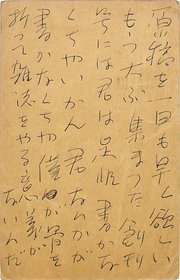 原稿を一日も早く欲しい
もう大ぶ集まつた 創刊
号には君は是非書かなく
ちやいかん 君なんかが
書かなくちや僕が骨を
折って雑誌をやる意義が
ないんだ